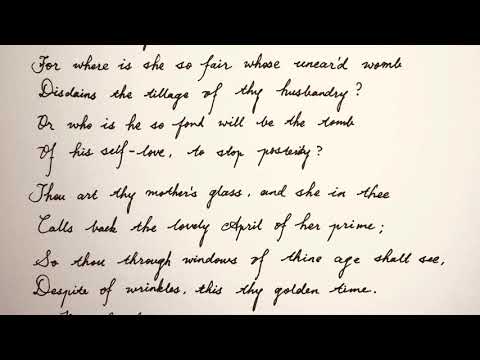 For where is she so fair whose unear'd womb
Disdains the tillage of thy husbandry?
Or who is he so fond will be the tomb
Of his self-love, to stop posterity?
Thou art thy mother's glass, and she in thee
Calls back the lovely April of her prime;
So thou through windows of thine age shall see,
Despite of wrinkles, this thy golden time.